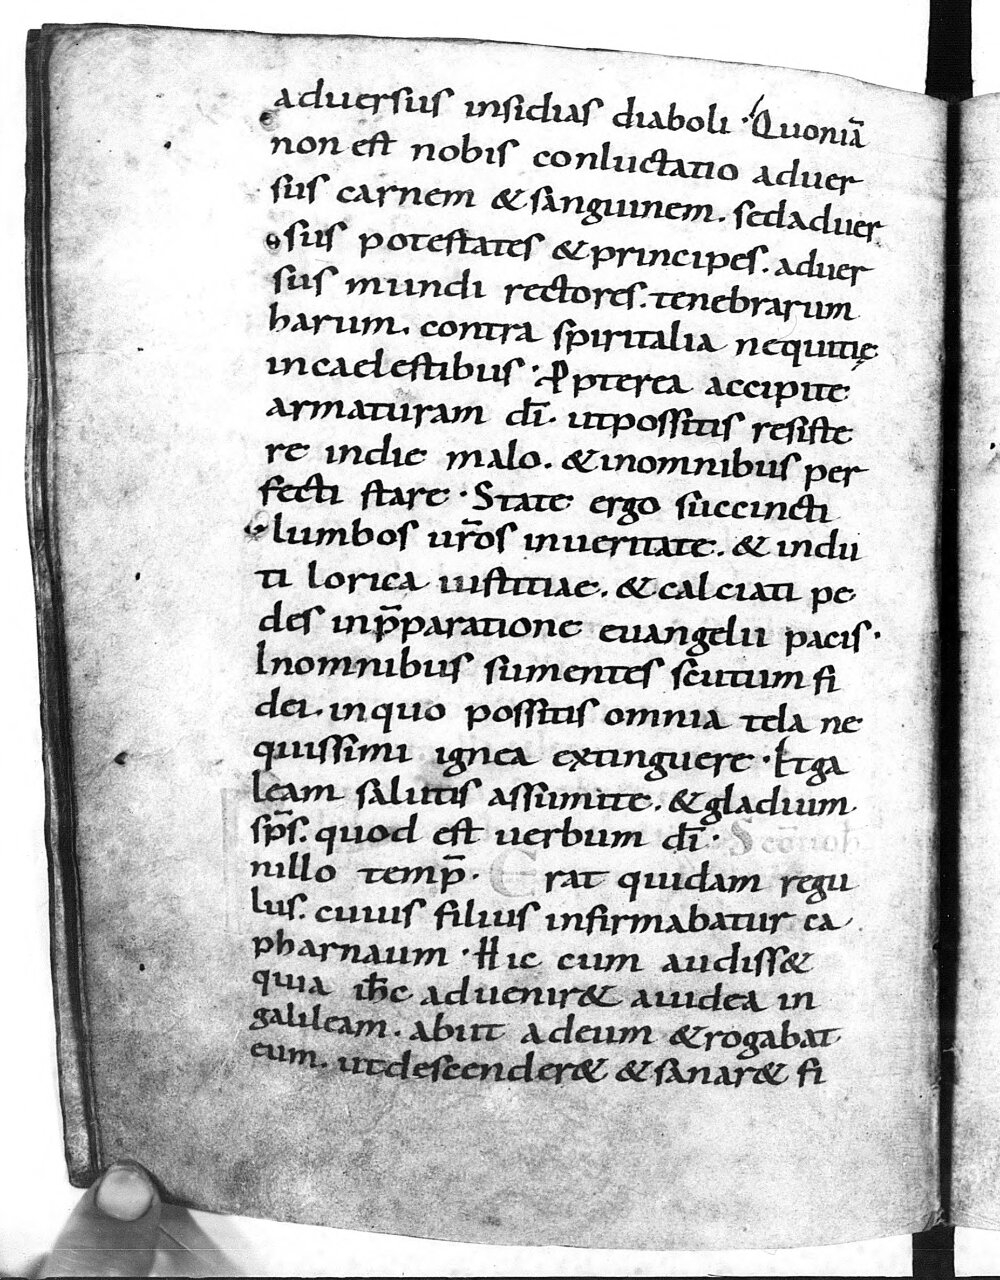 aduersus insidias diaboli · Quoniā
non est nobis conluctatio aduer
sus carnem & sanguinem. sedaduer
sus potestates & principes. aduer
sus mundi rectores. tenebrarum
harum. contra spiritalia nequitię
incaelestibus · Ppterea accipite
armaturam dī. utpossitis resiste
re indie malo. & inomnibus per
fecti stare · State ergo succincti
lumbos ur̄os inueritate. & indu
ti lorica iustitiae. & calciati pe
des inp̄paratione euangelii pacis ·
Inomnibus sumentes scutum fi
dei. inquo possitis omnia tela ne
quissimi ignea extinguere · Etga
leam salutis assumite. & gladium
sp̄s. quod est uerbum dī ·
nillo temp̄ · Erat quidam regu
lus. cuius filius infirmabatur ca
pharnaum · Hic cum audiss&
quia ih̄c aduenir& aiudea in
galileam. abiit adeum & rogabat
eum. utdescender& & sanar& fi